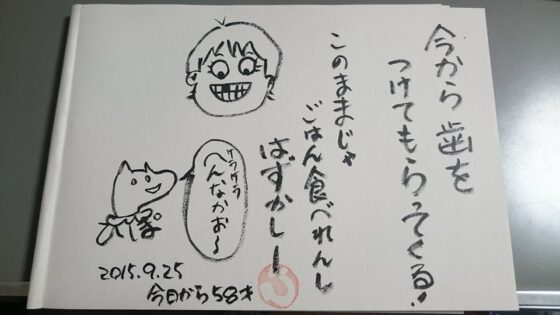 今から歯を
つけてもらってくる!
このままじゃ
ごはん食べれんし
はずかしー
ケラケラ
へんなかお〜
2015.9.25
今日から58才